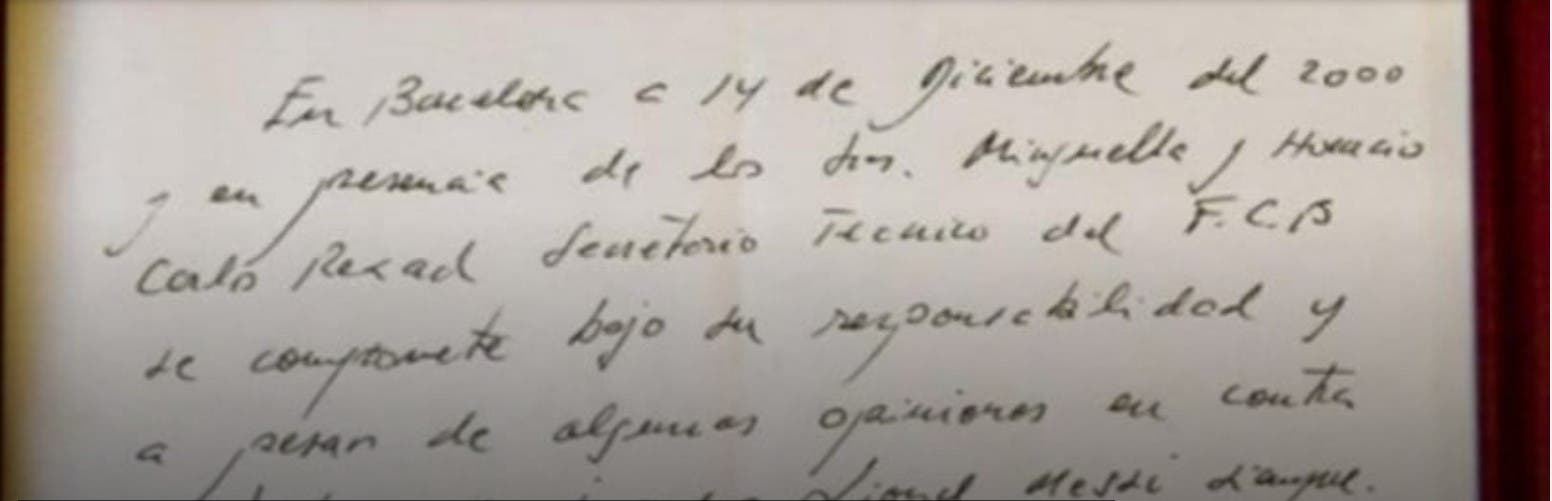 En Barcelona a 14 de Diciembre del 2000
y en presencia de los Srs. Minguella y Horacio
Carlos Rexach Secretario Tecnico del F.C.B
se compromete bajo su responsabilidad y
a pesar de algunas opiniones en contra
Lionel Messi siempre.